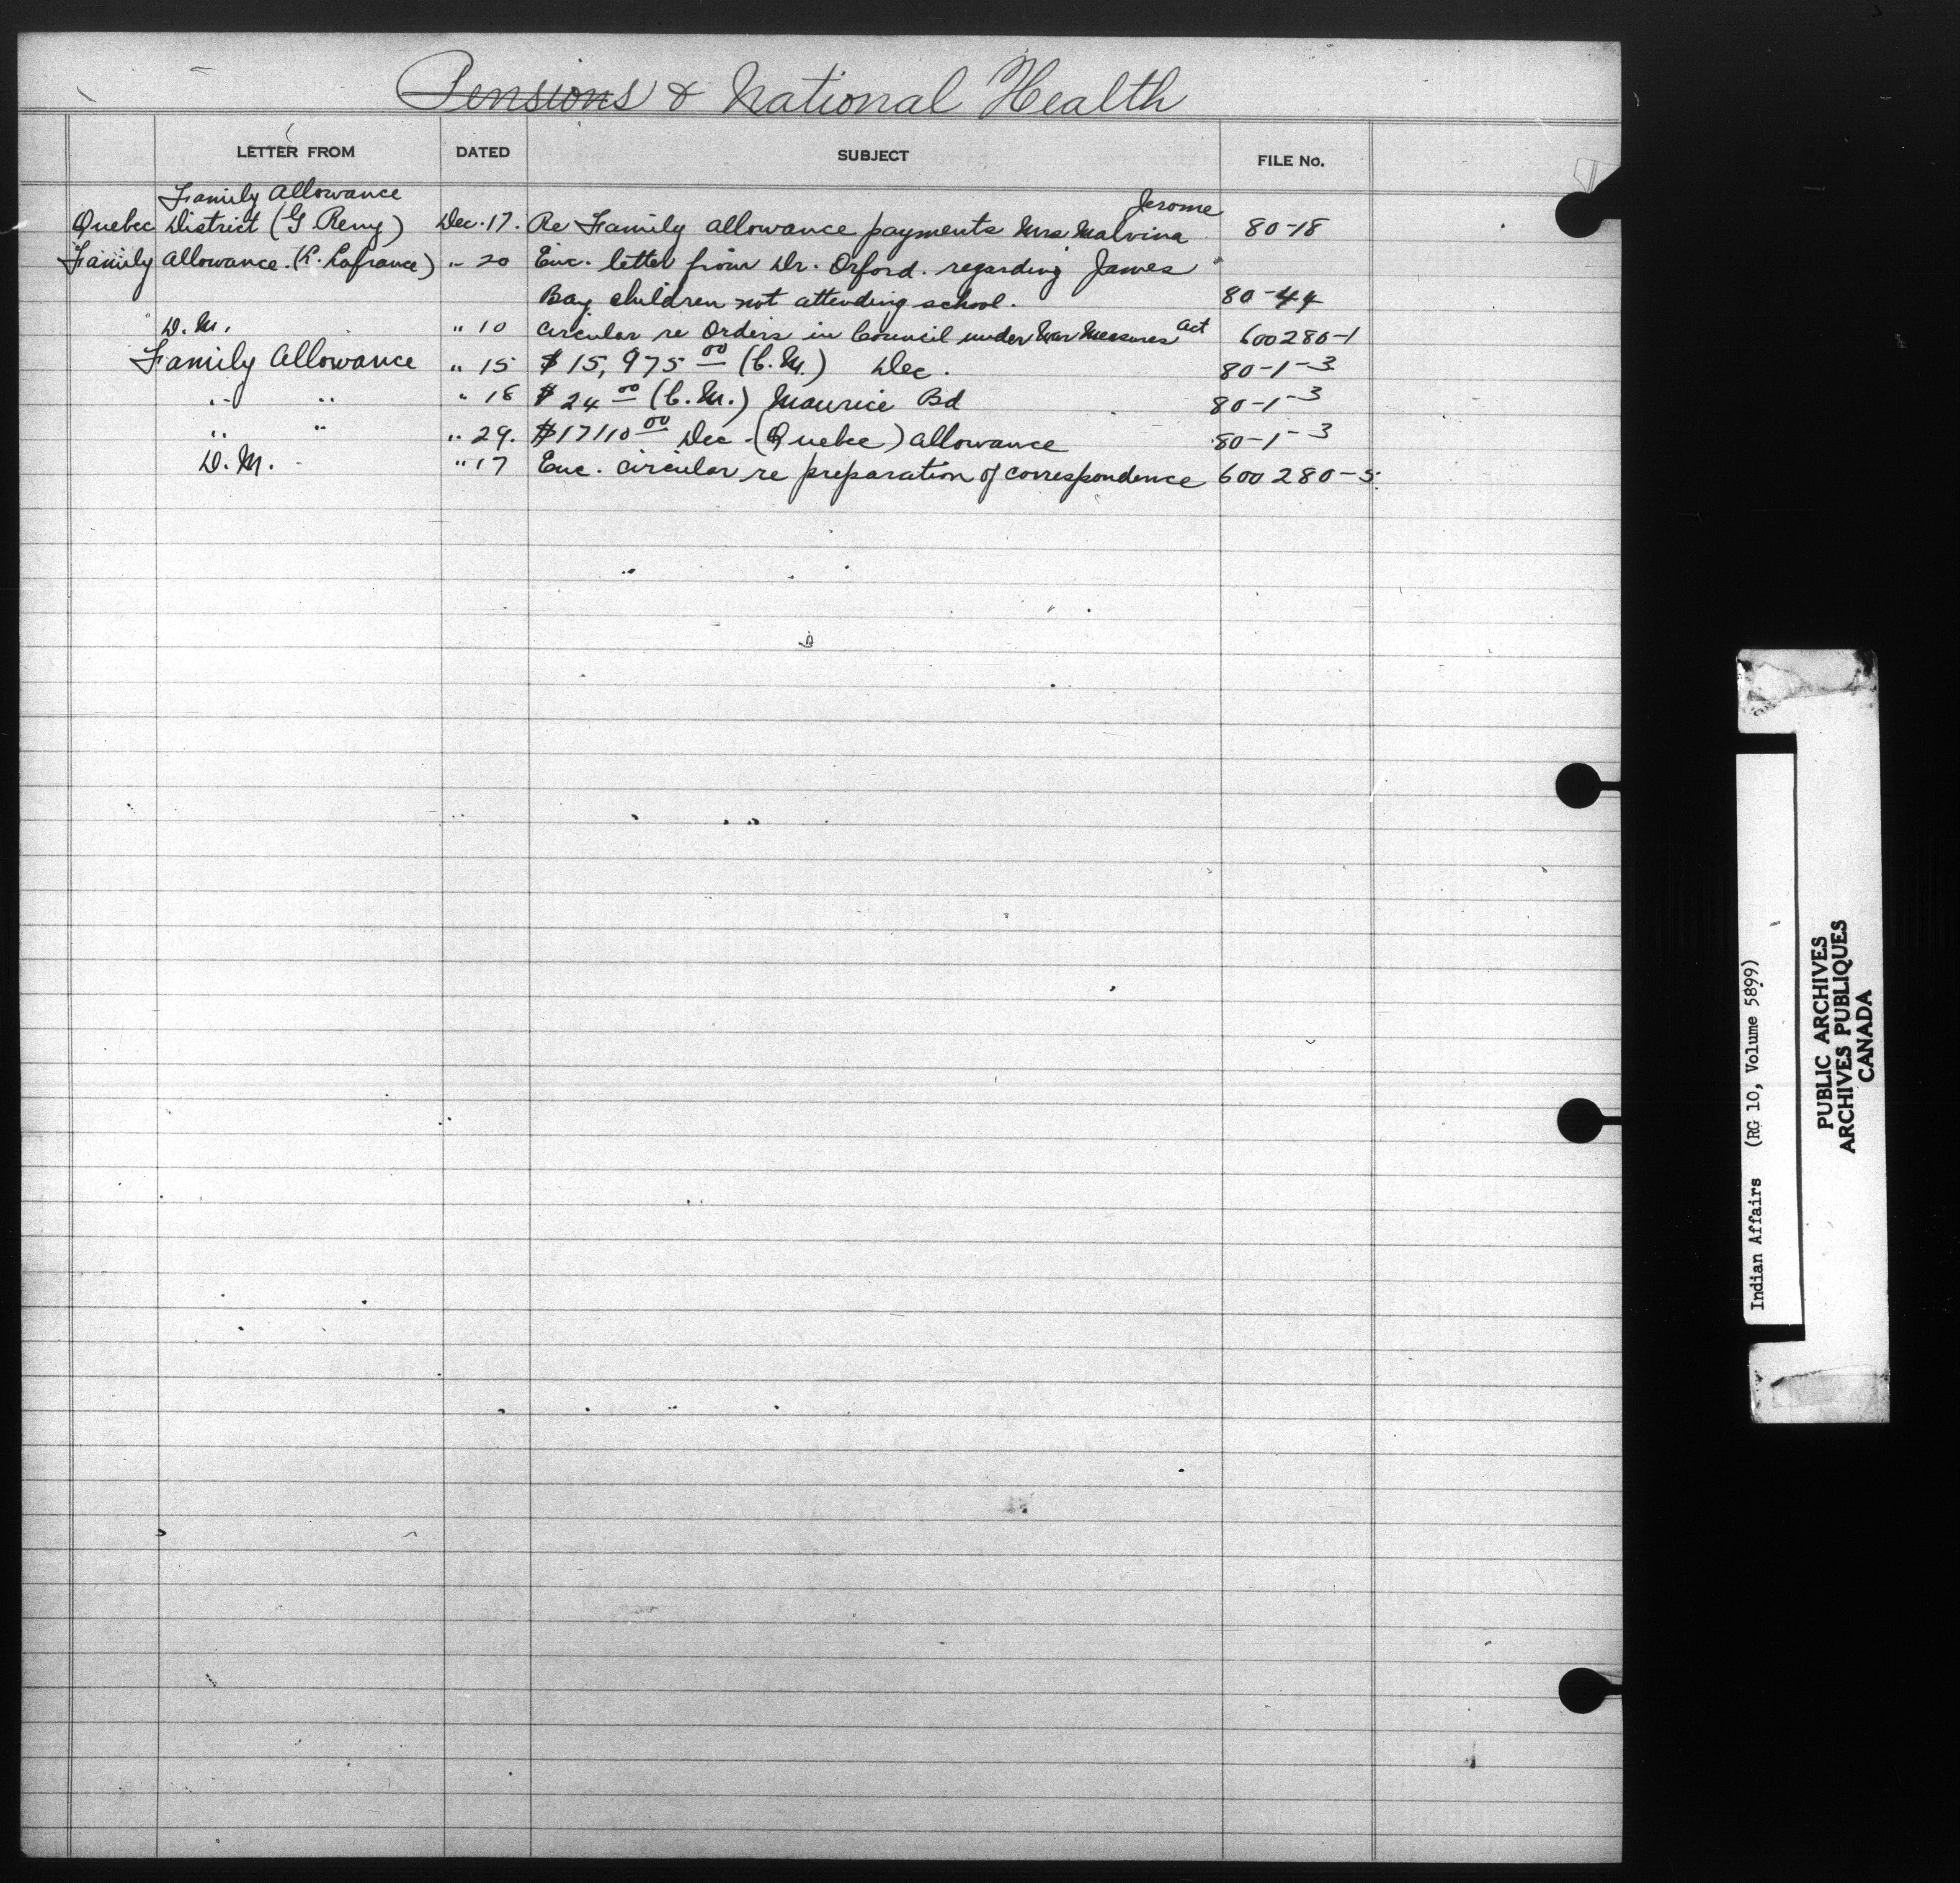 Pensions & National Health
LETTER FROM DATED SUBJECT FILE No.
Family Allowance Jerome
Quebec District (G Remy) Dec. 17. Re Family allowance payments Mrs Malvina 80-18
Family Allowance. (R. Lafrance) " 20 Enc. letter from Dr. Orford. regarding James
Bay children not attending school. 80-44
D.M. " 10 Circular re Orders in Council under War Measures Act 600280-1
Family Allowance " 15 $15,975 00 (C.M.) Dec. 80-1-3
" " " 18 $24 00 (C.M.) Maurice Bd 80-1-3
" " " 29. $17110 00 Dec - (Quebec) allowance 80-1-3
D.M. " 17 Enc. circular re preparation of correspondence 600280-5
Indian Affairs (RG 10, Volume 5899)
PUBLIC ARCHIVES
ARCHIVES PUBLIQUES
CANADA